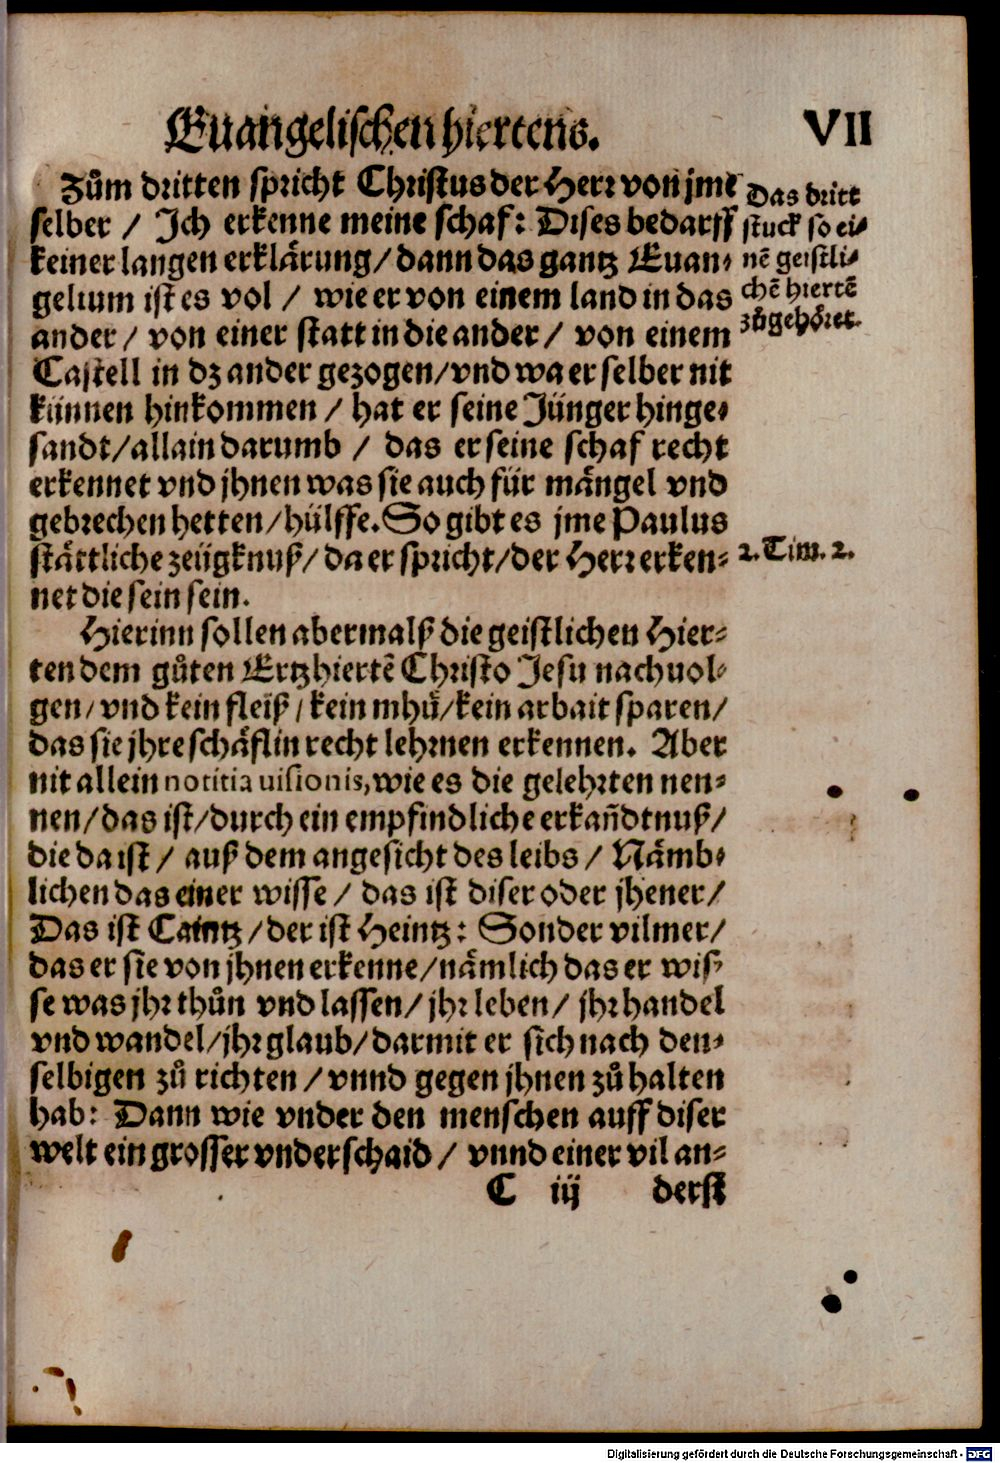 Euangelischen hiertens.
VII
Zům dritten spricht Christus der Herr von jme
selber / Ich erkenne meine schaf: Dises bedarff
keiner langen erklärung/dann das gantz Euan-
gelium ist es vol / wie er von einem land in das
ander/ von einer statt in die ander/ von einem
Castell in dz ander gezogen/vnd wa er selber nit
künnen hinkommen / hat er seine Jünger hinge-
sandt/allain darumb / das er seine schaf recht
erkennet vnd jhnen was sie auch für mängel vnd
gebrechen hetten/hülffe. So gibt es jme Paulus
stättliche zeügknuß/da er spricht/der Herr erken-
net die sein sein.
Das dritt
stuck so ei-
nē geistli-
chē hiertē
zůgehöret.
2. Tim. 2.
Hierinn sollen abermalß die geistlichen Hier-
ten dem gůten Ertzhiertē Christo Jesu nachuol-
gen/vnd kein fleiß/kein mhů/kein arbait sparen/
das sie jhre schäflin recht lehrnen erkennen. Aber
nit allein notitia uisionis, wie es die gelehrten nen-
nen/das ist/durch ein empfindliche erkañdtnuß/
die da ist/ auß dem angesicht des leibs / Nämb-
lichen das einer wisse / das ist diser oder jhener/
Das ist Caintz/der ist Heintz: Sonder vilmer/
das er sie von jhnen erkenne/nämlich das er wis-
se was jhr thůn vnd lassen/jhr leben/ jhr handel
vnd wandel/jhr glaub/darmit er sich nach den-
selbigen zů richten /vnnd gegen jhnen zů halten
hab: Dann wie vnder den menschen auff diser
welt ein grosser vnderschaid / vnnd einer vil an-
C iij
derst
Digitalisierung gefördert durch die Deutsche Forschungsgemeinschaft - DFG